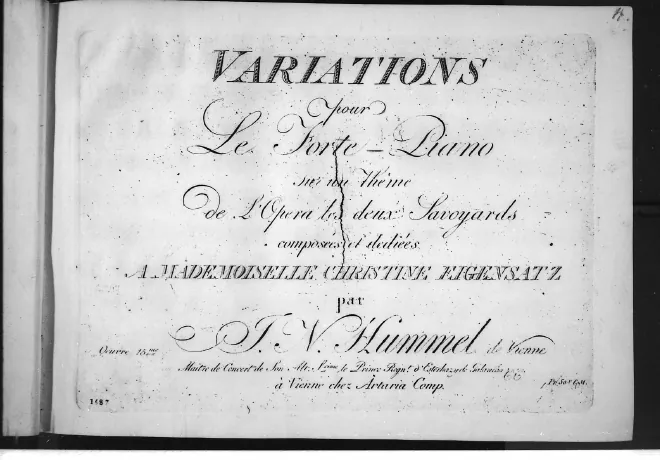 VARIATIONS
pour
Le Forte-Piano
sur un Thême
de L'Opera les deux Savoyards
composées et dediées
A MADEMOISELLE CHRISTINE EIGENSATZ
par
J. N. Hummel de Vienne
Oeuvre 15me
Maitre de Concert de Son Alt. Sme le Prince Regnt d'Esterhazy de Galantha
à Vienne chez Artaria Comp.